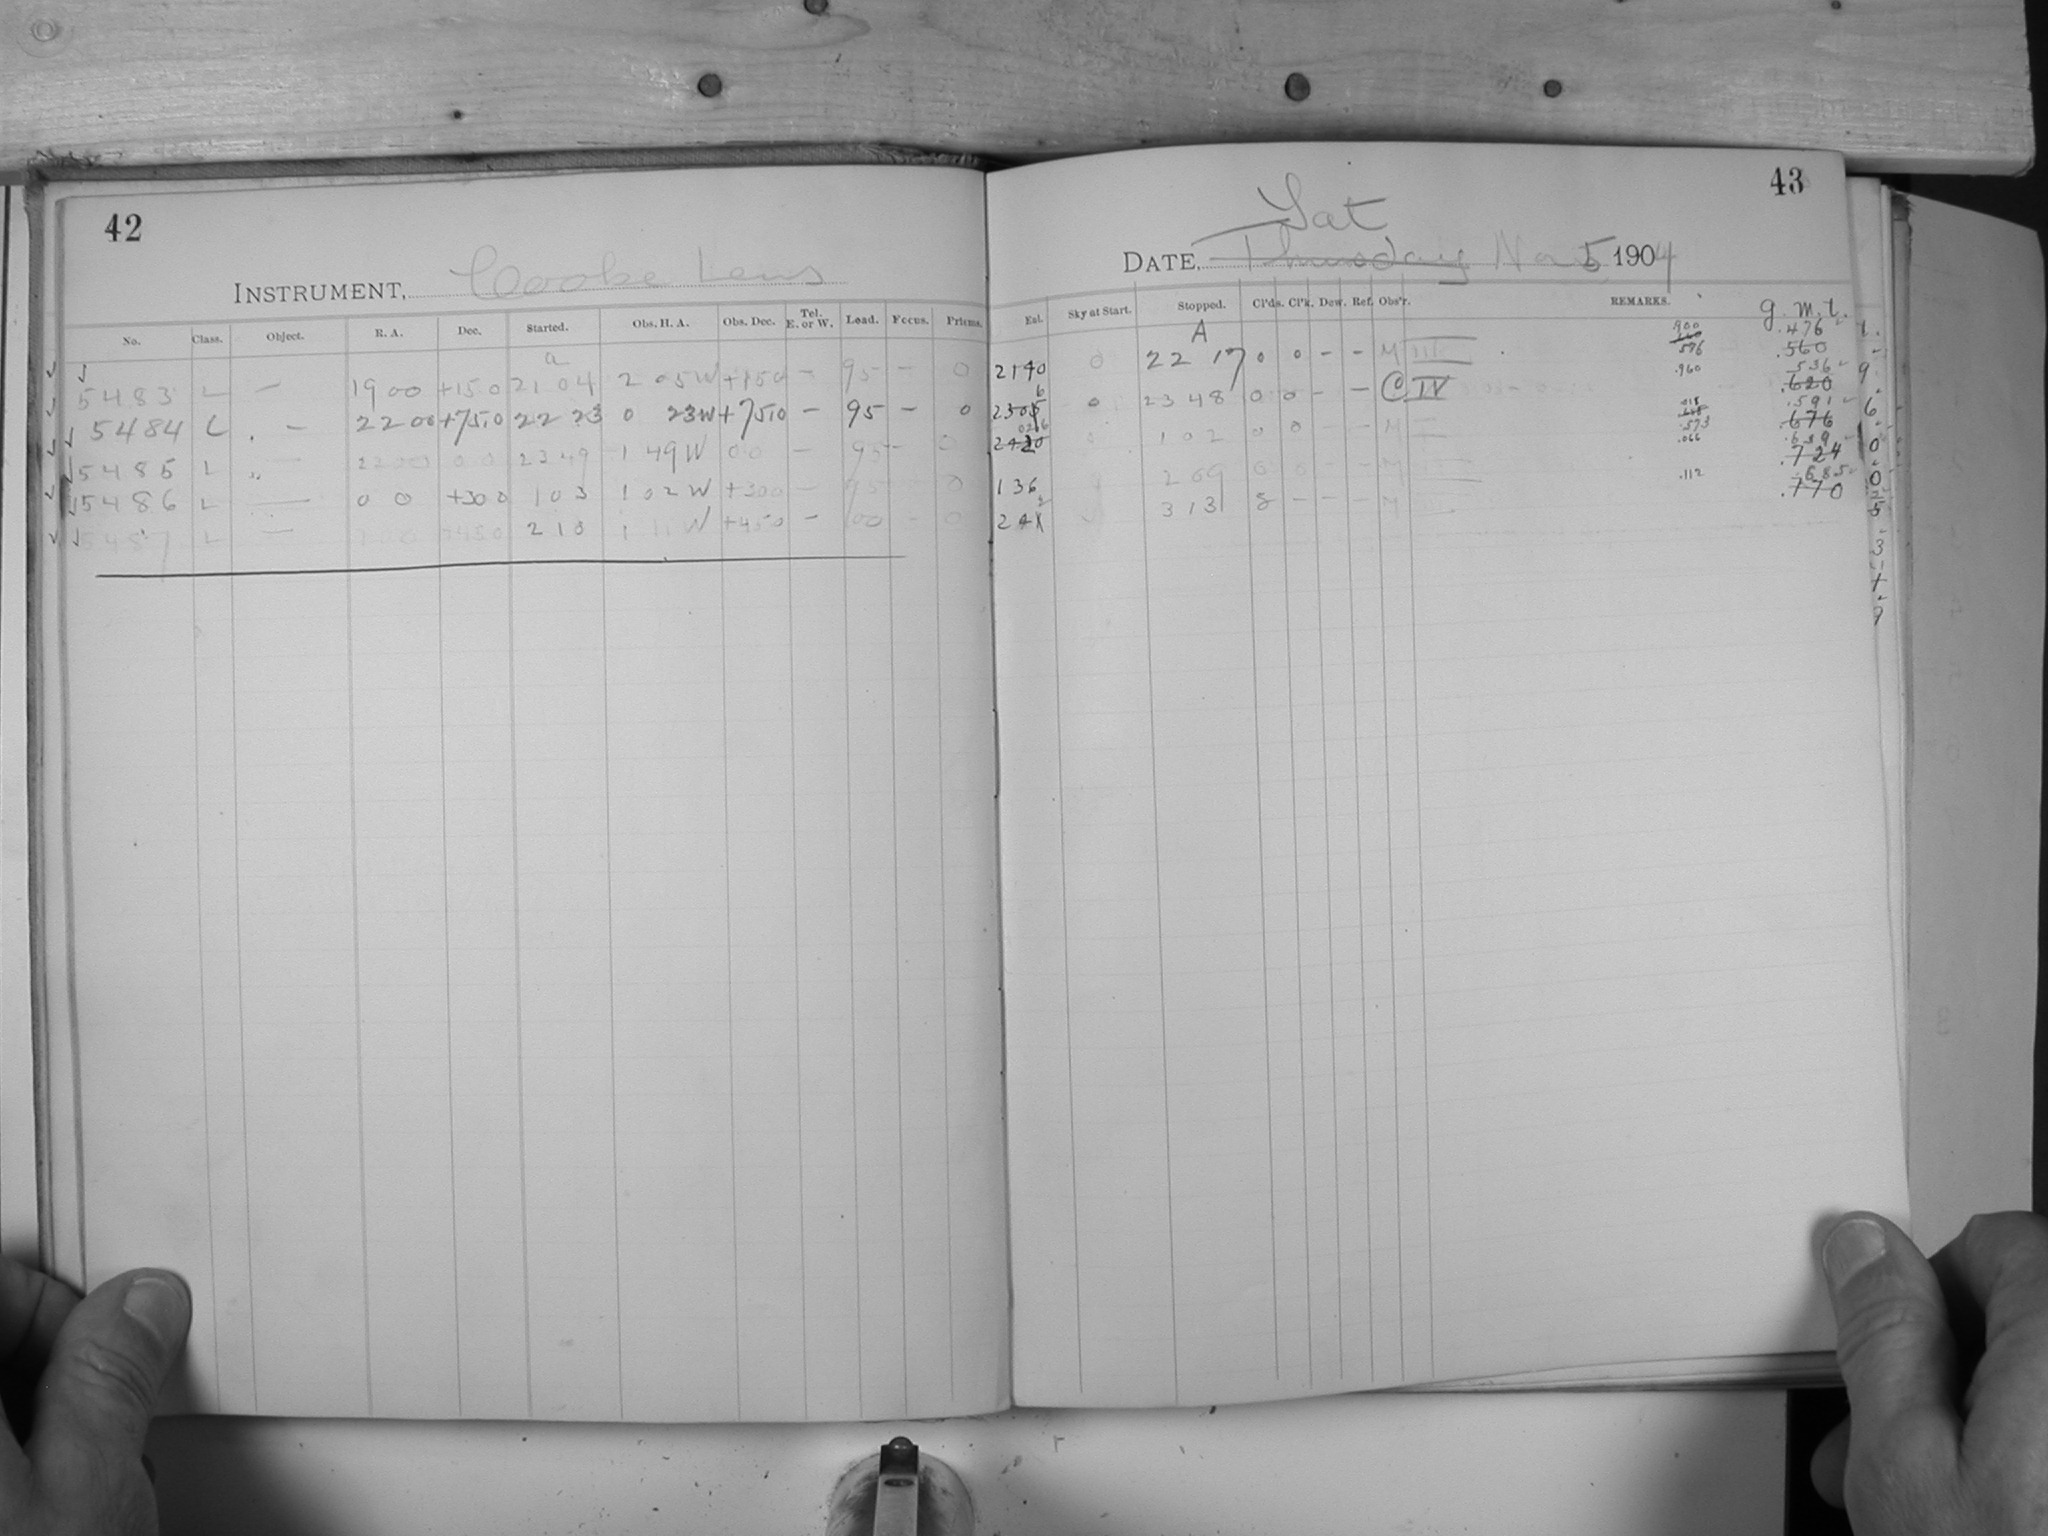 42
INSTRUMENT, Cooke Lens
No. Class. Object. R. A. Dec. Started. Obs. H. A. Obs. Dec. Tel. E. or W. Load. Focus. Prisms.
a
5483 L — 19 00 +15 0 21 04 2 05 W +15 0 — 95 — 0
5484 L — 22 00 +75 0 22 23 0 23 W +75 0 — 95 — 0
5485 L 0 0 23 49 1 49 W 0 0 — 95 — 0
5486 L — 0 0 +30 0 1 03 1 02 W +30 0 — 0
5487 L — +45 0 2 10 1 11 W +45 0 — 0
43
Sat
DATE, Thursday Nov 5 1904
Ext. Sky at Start. Stopped. Cl'ds. Cl'k. Dew. Ref. Obs'r. REMARKS. G. M. T.
A
2140 0 22 17 0 0 — — M III .476
.576 .560
0 23 48 0 0 — — C IV .960 .536
.620
.591
1 02 0 0 — — M .573 .676
.066 .639
136 2 09 0 0 — — M .724
.112 .685
3 13 8 — — — M .770